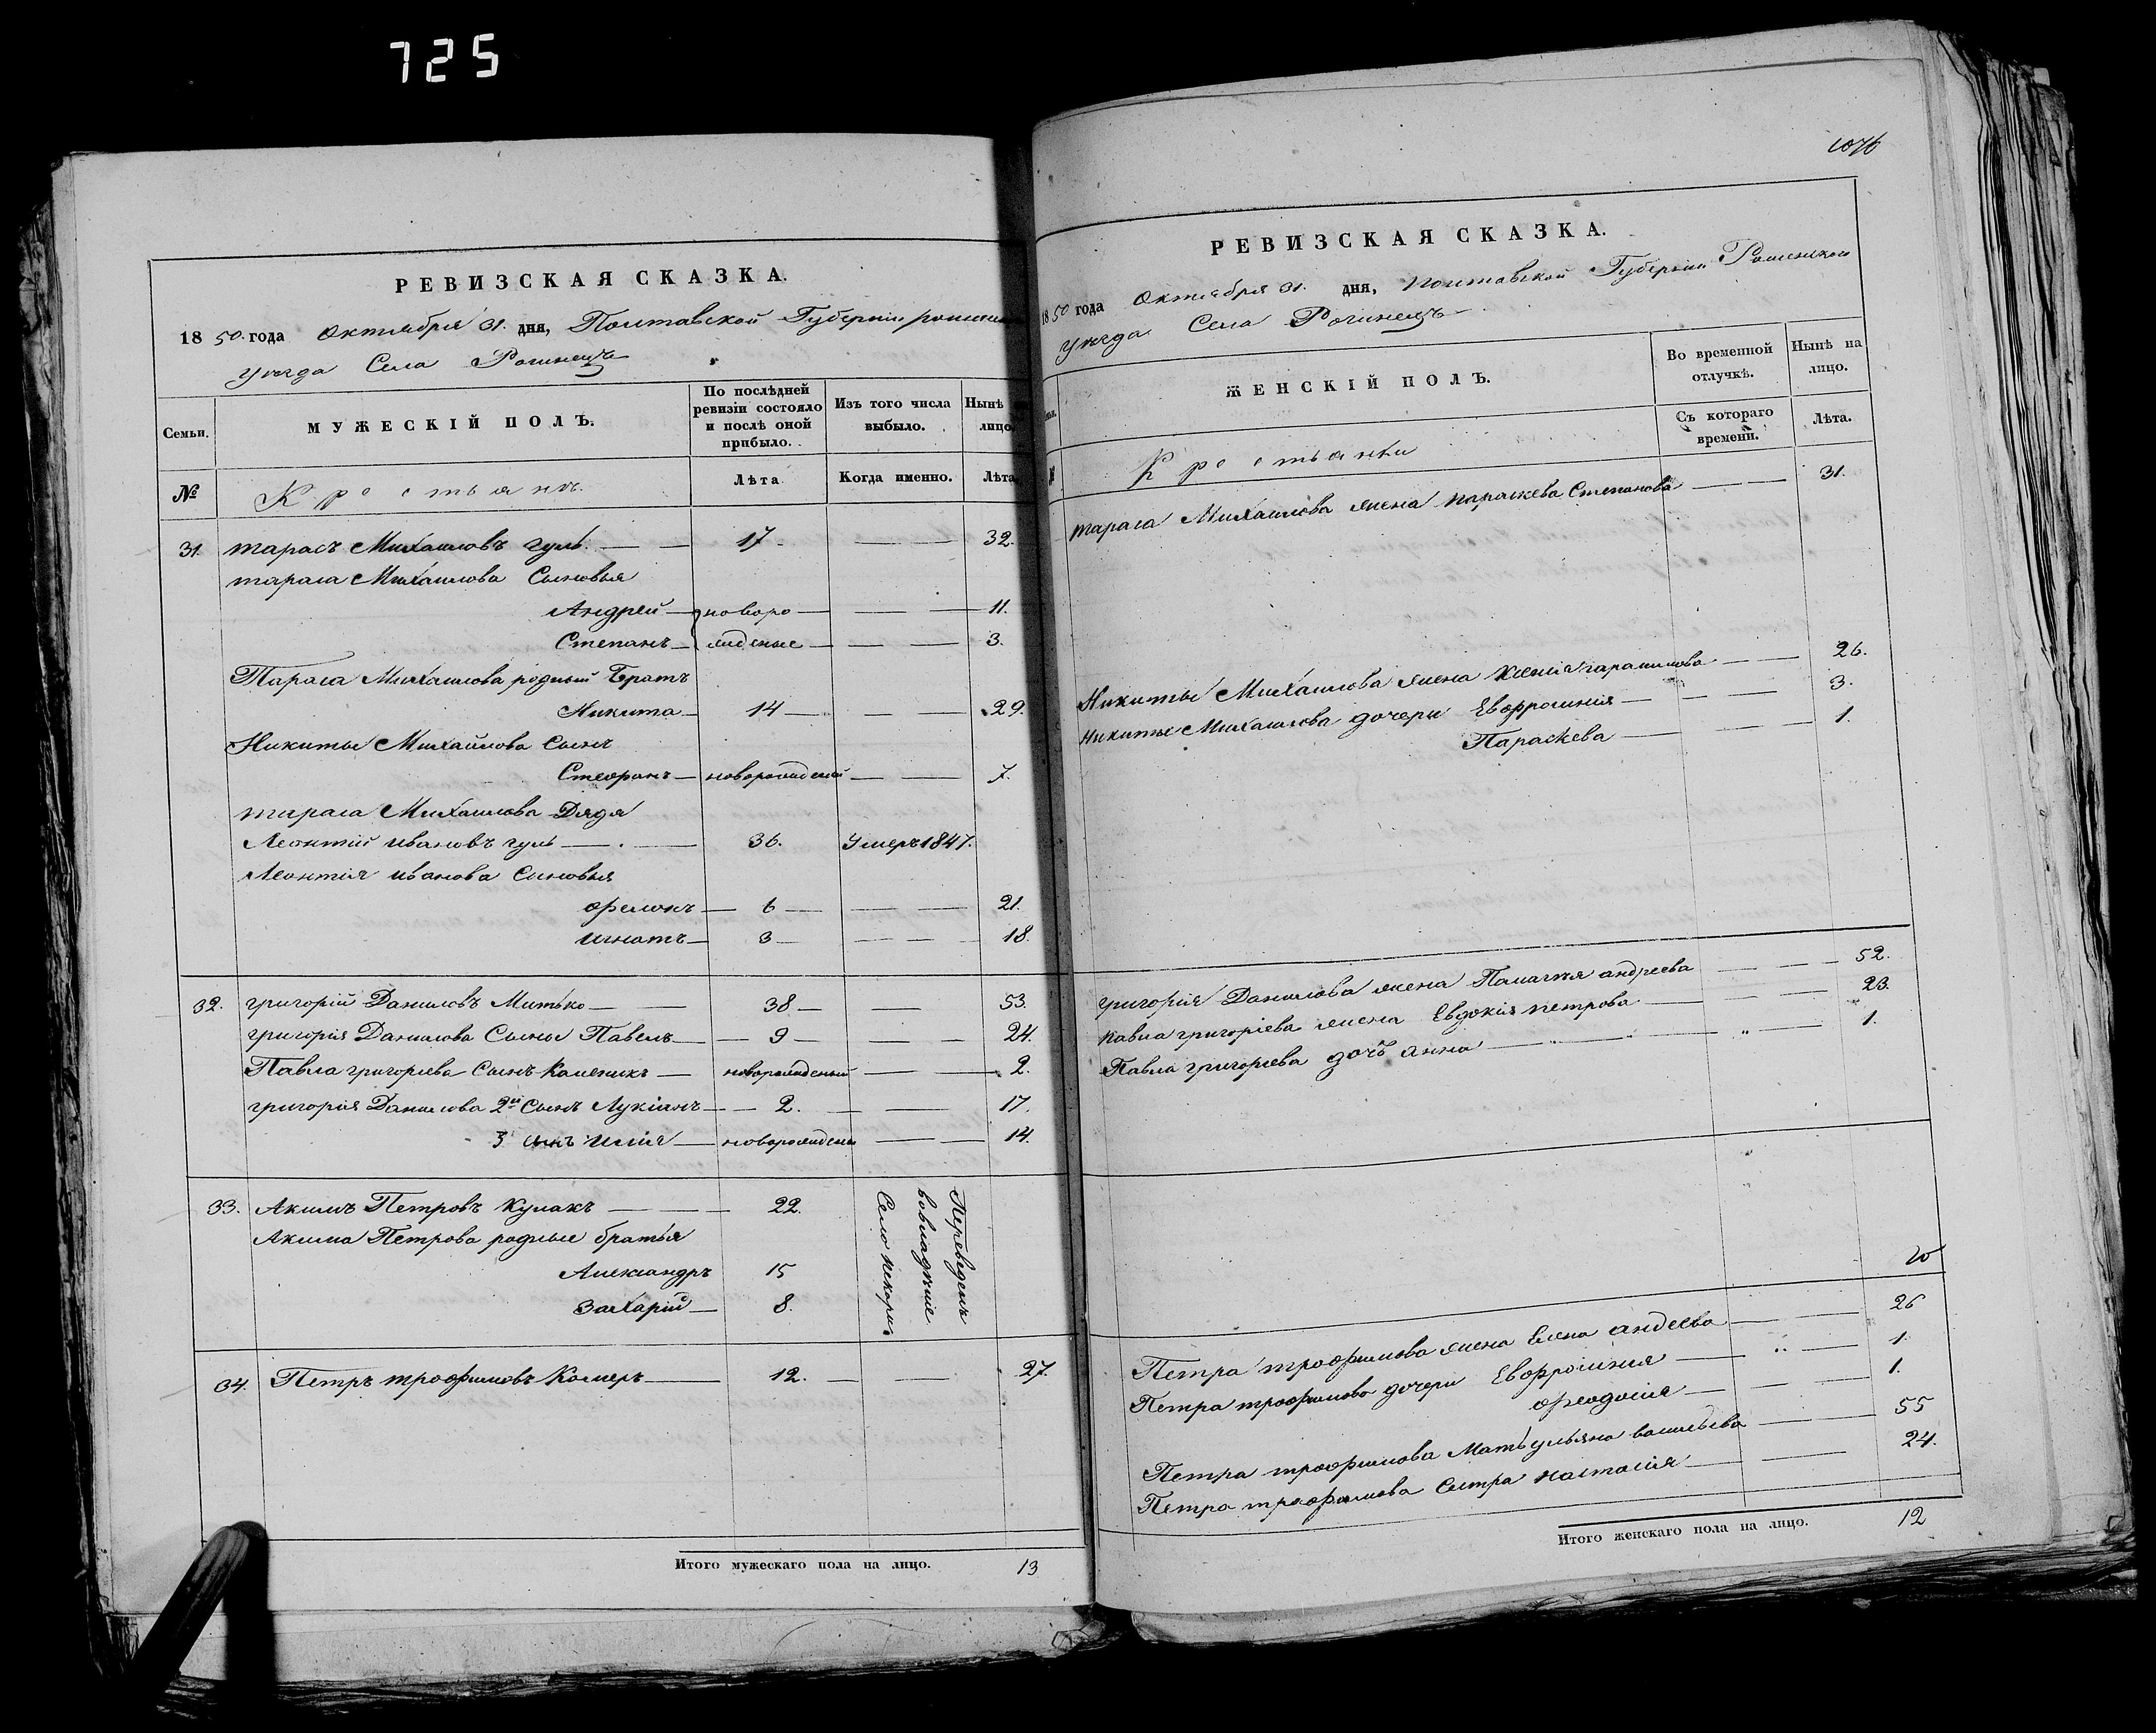 725
РЕВИЗСКАЯ СКАЗКА.
1850 года Октября 31. дня, Полтавской Губерніи
уезда Села Рогинецъ
Семьи.
МУЖЕСКІЙ ПОЛЪ.
По послѣдней ревизіи состояло и послѣ оной прибыло.
Изъ того числа выбыло.
Нынѣ лицо.
№
Крестьянъ.
Лѣта
Когда именно.
Лѣта
31. тарасъ Михаиловъ гуль. 17 32.
тараса Михаилова Сыновья
Андрей новоро 11.
Степанъ жденые 3.
Тараса Михаилова родный Братъ
Никита 14 29.
Никиты Михайлова Сынъ
Стефанъ новорожденый 7.
тараса Михаилова Дядя
Леонтій ивановъ гуль 36. Умеръ 1847.
Леонтія иванова Сыновья
филонъ 6 21.
игнатъ 3 18.
32. григорій Даниловъ Митько 38 53.
григорія Данилова Сыны Павелъ 9 24.
Павла григорьева Сынъ Каленикъ новорожденый 2.
григорія Данилова 2й Сынъ Лукіанъ 2. 17.
3 сынъ илія новорожденый 14.
33. Акимъ Петровъ Кулакъ 22.
Акима Петрова родные братья
Александръ 15
Захарій 8.
Переведены
вовладѣніе
Село
34. Петръ трофимовъ Комеръ 12. 27.
Итого мужескаго пола на лицо. 13
1076
РЕВИЗСКАЯ СКАЗКА.
1850 года Октября 31. дня, Полтавской Губерніи Роменского
уезда Села Рогинецъ
ЖЕНСКІЙ ПОЛЪ.
Во временной отлучкѣ.
Нынѣ на лицо.
Съ котораго времени.
Лѣта.
Крестьянки
тараса Михаилова жена параскева Степанова 31.
Никиты Михаилова жена Ксенія гарасимова 26.
никиты Михаилова дочери Евфросинія 3.
Параскева 1.
григорія Данилова жена Палагея андреева 52.
павла григоріева жена Евдокія петрова 23.
Павла григорьева дочь анна 1.
Петра трофимова жена Елена андеева 26
Петра трофимова дочери Евфросинія 1.
феодосія 1.
Петра трофимова Мать ульяна васильева 55
Петра трофимова Сестра настасія 24.
Итого женскаго пола на лицо. 12